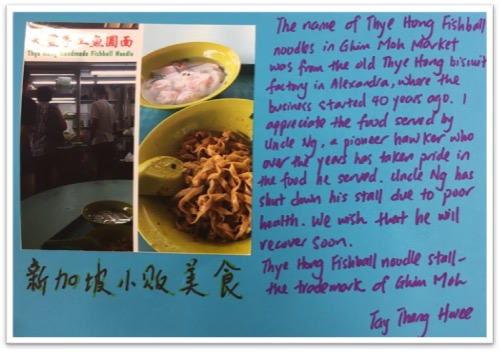 手工魚圓面
Thye Hong Handmade Fishball Noodle
新加坡小贩美食
The name of Thye Hong Fishball
noodles in Ghim Moh Market
was from the old Thye Hong biscuit
factory in Alexandra, where the
business started 40 years ago. I
appreciate the food served by
Uncle Ng, a pioneer hawker who
over the years has taken pride in
the food he served. Uncle Ng has
shut down his stall due to poor
health. We wish that he will
recover soon.
Thye Hong Fishball noodle stall -
the trademark of Ghim Moh
Tay Thong Hwee